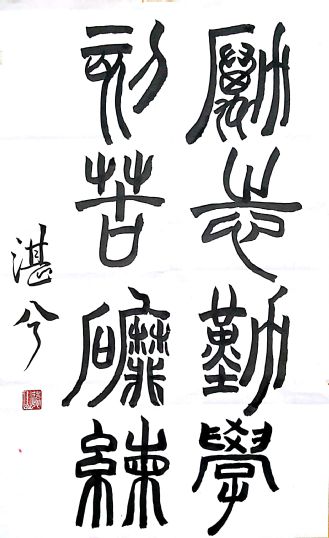 勵志勤學
刻苦磨練
湛兮